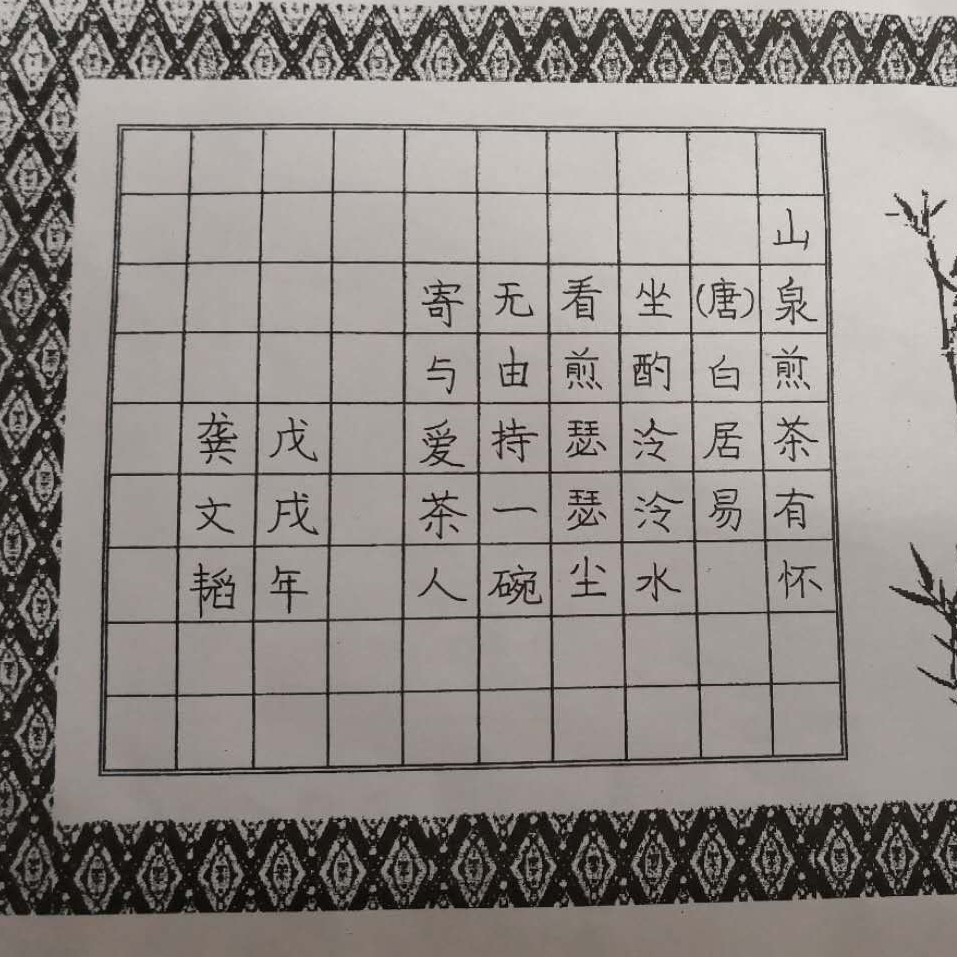 山泉煎茶有怀
(唐)白居易
坐酌泠泠水
看煎瑟瑟尘
无由持一碗
寄与爱茶人
戊戌年
龚文韬